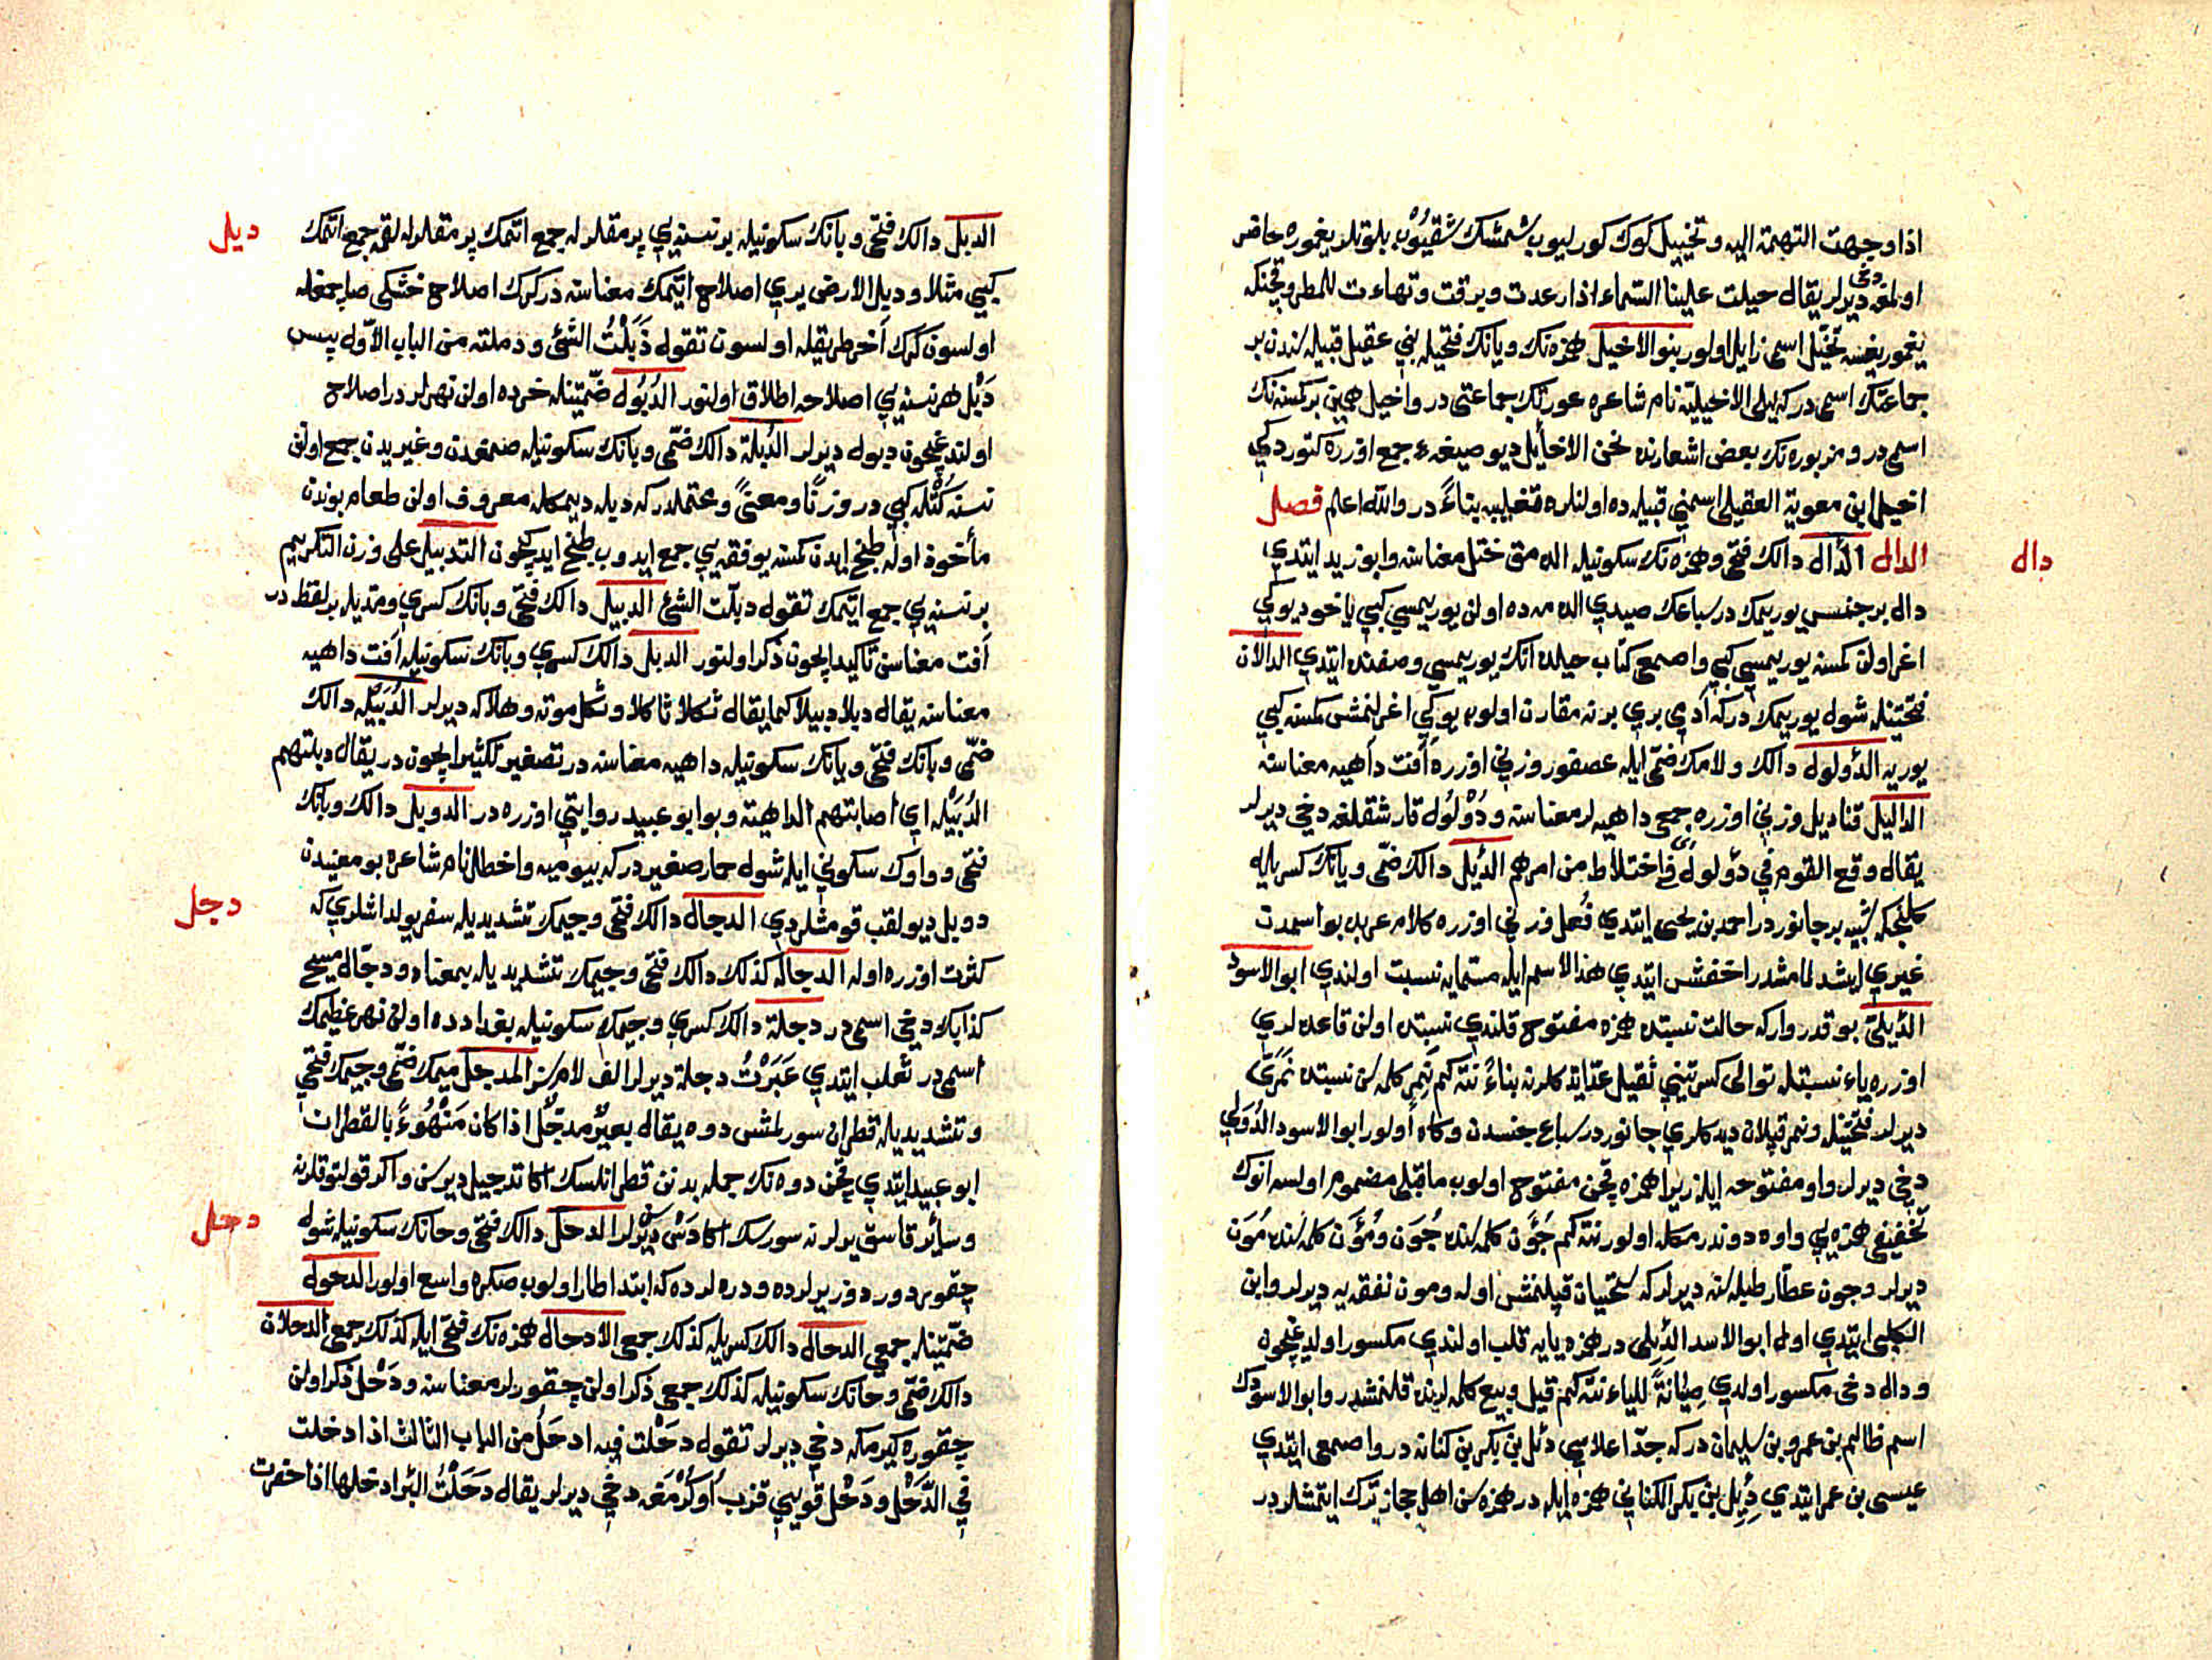 اذا وجهت التهمة اليه وتخييل كوك كورليوب شمشك شقيوب بلوتلر يغموره حاضر
اولمغه دخى ديرلر يقال خيلت علينا السماء اذا رعدت وبرقت وتهاءت للمطر وقچنكه
يغمور يغسه تخيّل اسمى زايل اولور بنو الاخيل همزه نك ويانك فتحيله بنى عقيل قبيله سندن بر
جماعتك اسمى در كه ليلى الاخيليّة نام شاعره عورتك جماعتى در واخيل همين بر كسنه نك
اسمى در ومزبوره نك بعض اشعارنده نحن الاخايل ديو صيغهء جمع اوزره كتوردكى
اخيل ابن معوية العقيلى اسمنى قبيله ده اولنلره تغليبه بناءً در والله اعلم فصل
دال
الدال الدأل دالك فتحى وهمزه نك سكونيله الدمق ختل معناسنه وابو زيد ايتدى
دال بر جنس يوريمك در سباعك صيدى الدمه ده اولن يوريمسى كبى ياخود يوكى
اغر اولن كمسنه يوريمسى كبى واصمعى كتاب خيلده آنك يوريمسى وصفنده ايتدى الدالان
فتحتينله شول يوريمك در كه آدمى برى برنه مقارن اولوب يوكى اغرلنمش كمسنه كبى
يوريه الدؤلول دالك ولامك ضمّى ايله عصفور وزنى اوزره آفت داهيه معناسنه
الداليل قناديل وزنى اوزره جمعى داهيه لر معناسنه ودُؤْلُول قارشقلغه دخى ديرلر
يقال وقع القوم فى دؤلول اى فى اختلاط من امرهم الدُئِل دالك ضمّى ويانك كسريله
كلنجكه شبيه بر جانوردر احمد بن يحيى ايتدى فُعِل وزنى اوزره كلام عربده بو اسمدن
غيرى ايشدلمامشدر اخفش ايتدى هذا الاسم ايله مسمايه نسبت اولندى ابو الاسود
الدُئِلىّ بو قدر وار كه حالت نسبتده همزه مفتوح قلندى نسبتده اولن قاعده لرى
اوزره ياء نسبتله توالى كسرتينى ثقيل عدّ ايتدكلرنه بناءً نته كم نَمِر كلمه سن نسبتده نَمَرىّ
ديرلر فتحتينله ونمر قپلان ديدكلرى جانوردر سباع جنسدن وكاه اولور ابو الاسود الدُوَلى
دخى ديرلر واو مفتوحه ايله زيرا همزه قچن مفتوح اولوب ماقبلى مضموم اولسه انوك
تخفيفى همزه يى واوه دوندرمكله اولور نته كم جُؤَن كلمه سنده جُوَن ومُؤَن كلمه سنده مُوَن
ديرلر وجون عطّار طبله سنه ديرلر كه سختيان قپلنمش اوله ومون نفقه يه ديرلر وابن
الكلبى ايتدى اول ابو الاسد الدِيلى در همزه يايه قلب اولندى مكسور اولديغيچون
ودال دخى مكسور اولدى صِيَانَةً للياء نته كم قيل وبيع كلمه لرنده قلنمشدر وابو الاسودك
اسمى ظالم بن عمرو بن سليمان در كه جدّ اعلاسى دئل بن بكر بن كنانه در واصمعى ايتدى
عيسى بن عمر ايتدى دُئِل بن بكر الكنانى همزه ايله در همزه سن اهل حجاز ترك ايتمشلردر
دبل
الدبل دالك فتحى وبانك سكونيله بر نسنه يى پرمقلرله جمع اتمك پرمقلرله لقمه جمع اتمك
كبى مثلا ودبل الارض يرى اصلاح ايتمك معناسنه در كرك اصلاح خشكى صاچمغله
اولسون كرك آخر طريقله اولسون تقول دَبَلْتُ الشئ ودملته من الباب الاوّل پس
دَبْل هر نسنه يى اصلاحه اطلاق اولنور الدُبُول ضمّتينله خرده اولن نهرلر در اصلاح
اولندغيچون دبول ديرلر الدُبلة دالك ضمّى وبانك سكونيله صمغدن وغيريدن جمع اولن
نسنه كُتْله كبى در وزنًا ومعنىً ومحتملدر كه دبله ديمكله معروف اولن طعام بوندن
مأخوذ اوله طبخ ايدن كمسنه يوفقه يى جمع ايدوب طبخ ايدركيچون التدبيل على وزن التكريم
بر نسنه يى جمع ايتمك تقول دبلت الشئ الدبيل دالك فتحى وبانك كسرى ومديله بر لفظ در
آفت معناسن تاكيد ايچون ذكر اولنور الدبل دالك كسرى وبانك سكونيله آفت داهيه
معناسنه يقال دبلا دبيلا كما يقال ثكلا ثاكلا وثكل موته وهلاكه ديرلر الدُبَيْله دالك
ضمّى وبانك فتحى ويانك سكونيله داهيه معناسنه در تصغير تكثير ايچون در يقال دبلتهم
الدُبَيْله اى اصابتهم الداهية وبو ابو عبيد روايتى اوزره در الدوبل دالك وبانك
فتحى وواوك سكونى ايله شول حمار صغير در كه بيوميه واخطل نام شاعره بو معنيدن
دجل
دوبل ديو لقب قومشلردى الدجال دالك فتحى وجيمك تشديديله سفر يولداشلرى كه
كثرت اوزره اوله الدجاله كذلك دالك فتحى وجيمك تشديديله بمعناه ودجّال مسيح
كذابك دخى اسمى در دجلة دالك كسرى وجيمك سكونيله بغدادده اولن نهر عظيمك
اسمى در ثعلب ايتدى عَبَرْتُ دجلة ديرلر الف لامسز المدجل ميمك ضمّى وجيمك فتحى
وتشديديله قطران سورلمش دوه يقال بعيرٌ مدجَّل اذا كان مَهْنُوءً بالقطران
ابو عبيد ايتدى قچن دوه نك جمله بدنن قطرانلسك اكا تدجيل ديرسن واكر قولتوقلرنه
دحل
وسائر قاسق يرلرنه سورسك اكا دَسّ ديرلر الدحل دالك فتحى وحانك سكونيله شول
چقوردور دوز يرلرده ودره لرده كه ابتدا طار اولوب صكره واسع اولور الدحول
ضمّتينله جمعى الدحال دالك كسريله كذلك جمعى الادحال همزه نك فتحى ايله كذلك جمعى الدحلان
دالك ضمّى وحانك سكونيله كذلك جمعى ذكر اولن چقورلر معناسنه ودَحْل ذكر اولن
چقوره كيرمكه دخى ديرلر تقول دحَلْت فيه ادحَل من الباب الثالث اذا دخلت
فى الدَحْل ودَحْل قويى قزب اوكرمغه دخى ديرلر يقال دَحَلْتُ البئر ادحلها اذا حفرت